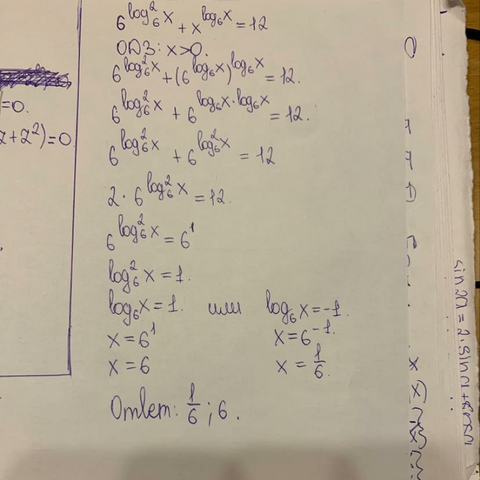 6^{log₆²x} + x^{log₆x} = 12
ОДЗ: x>0.
6^{log₆²x} + (6^{log₆x})^{log₆x} = 12.
6^{log₆²x} + 6^{log₆x·log₆x} = 12.
6^{log₆²x} + 6^{log₆²x} = 12
2·6^{log₆²x} = 12.
6^{log₆²x} = 6¹
log₆²x = 1.
log₆x = 1. или log₆x = -1.
x = 6¹ x = 6⁻¹.
x = 6 x = 1/6.
Ответ: 1/6; 6.
=0.
z+z²)=0